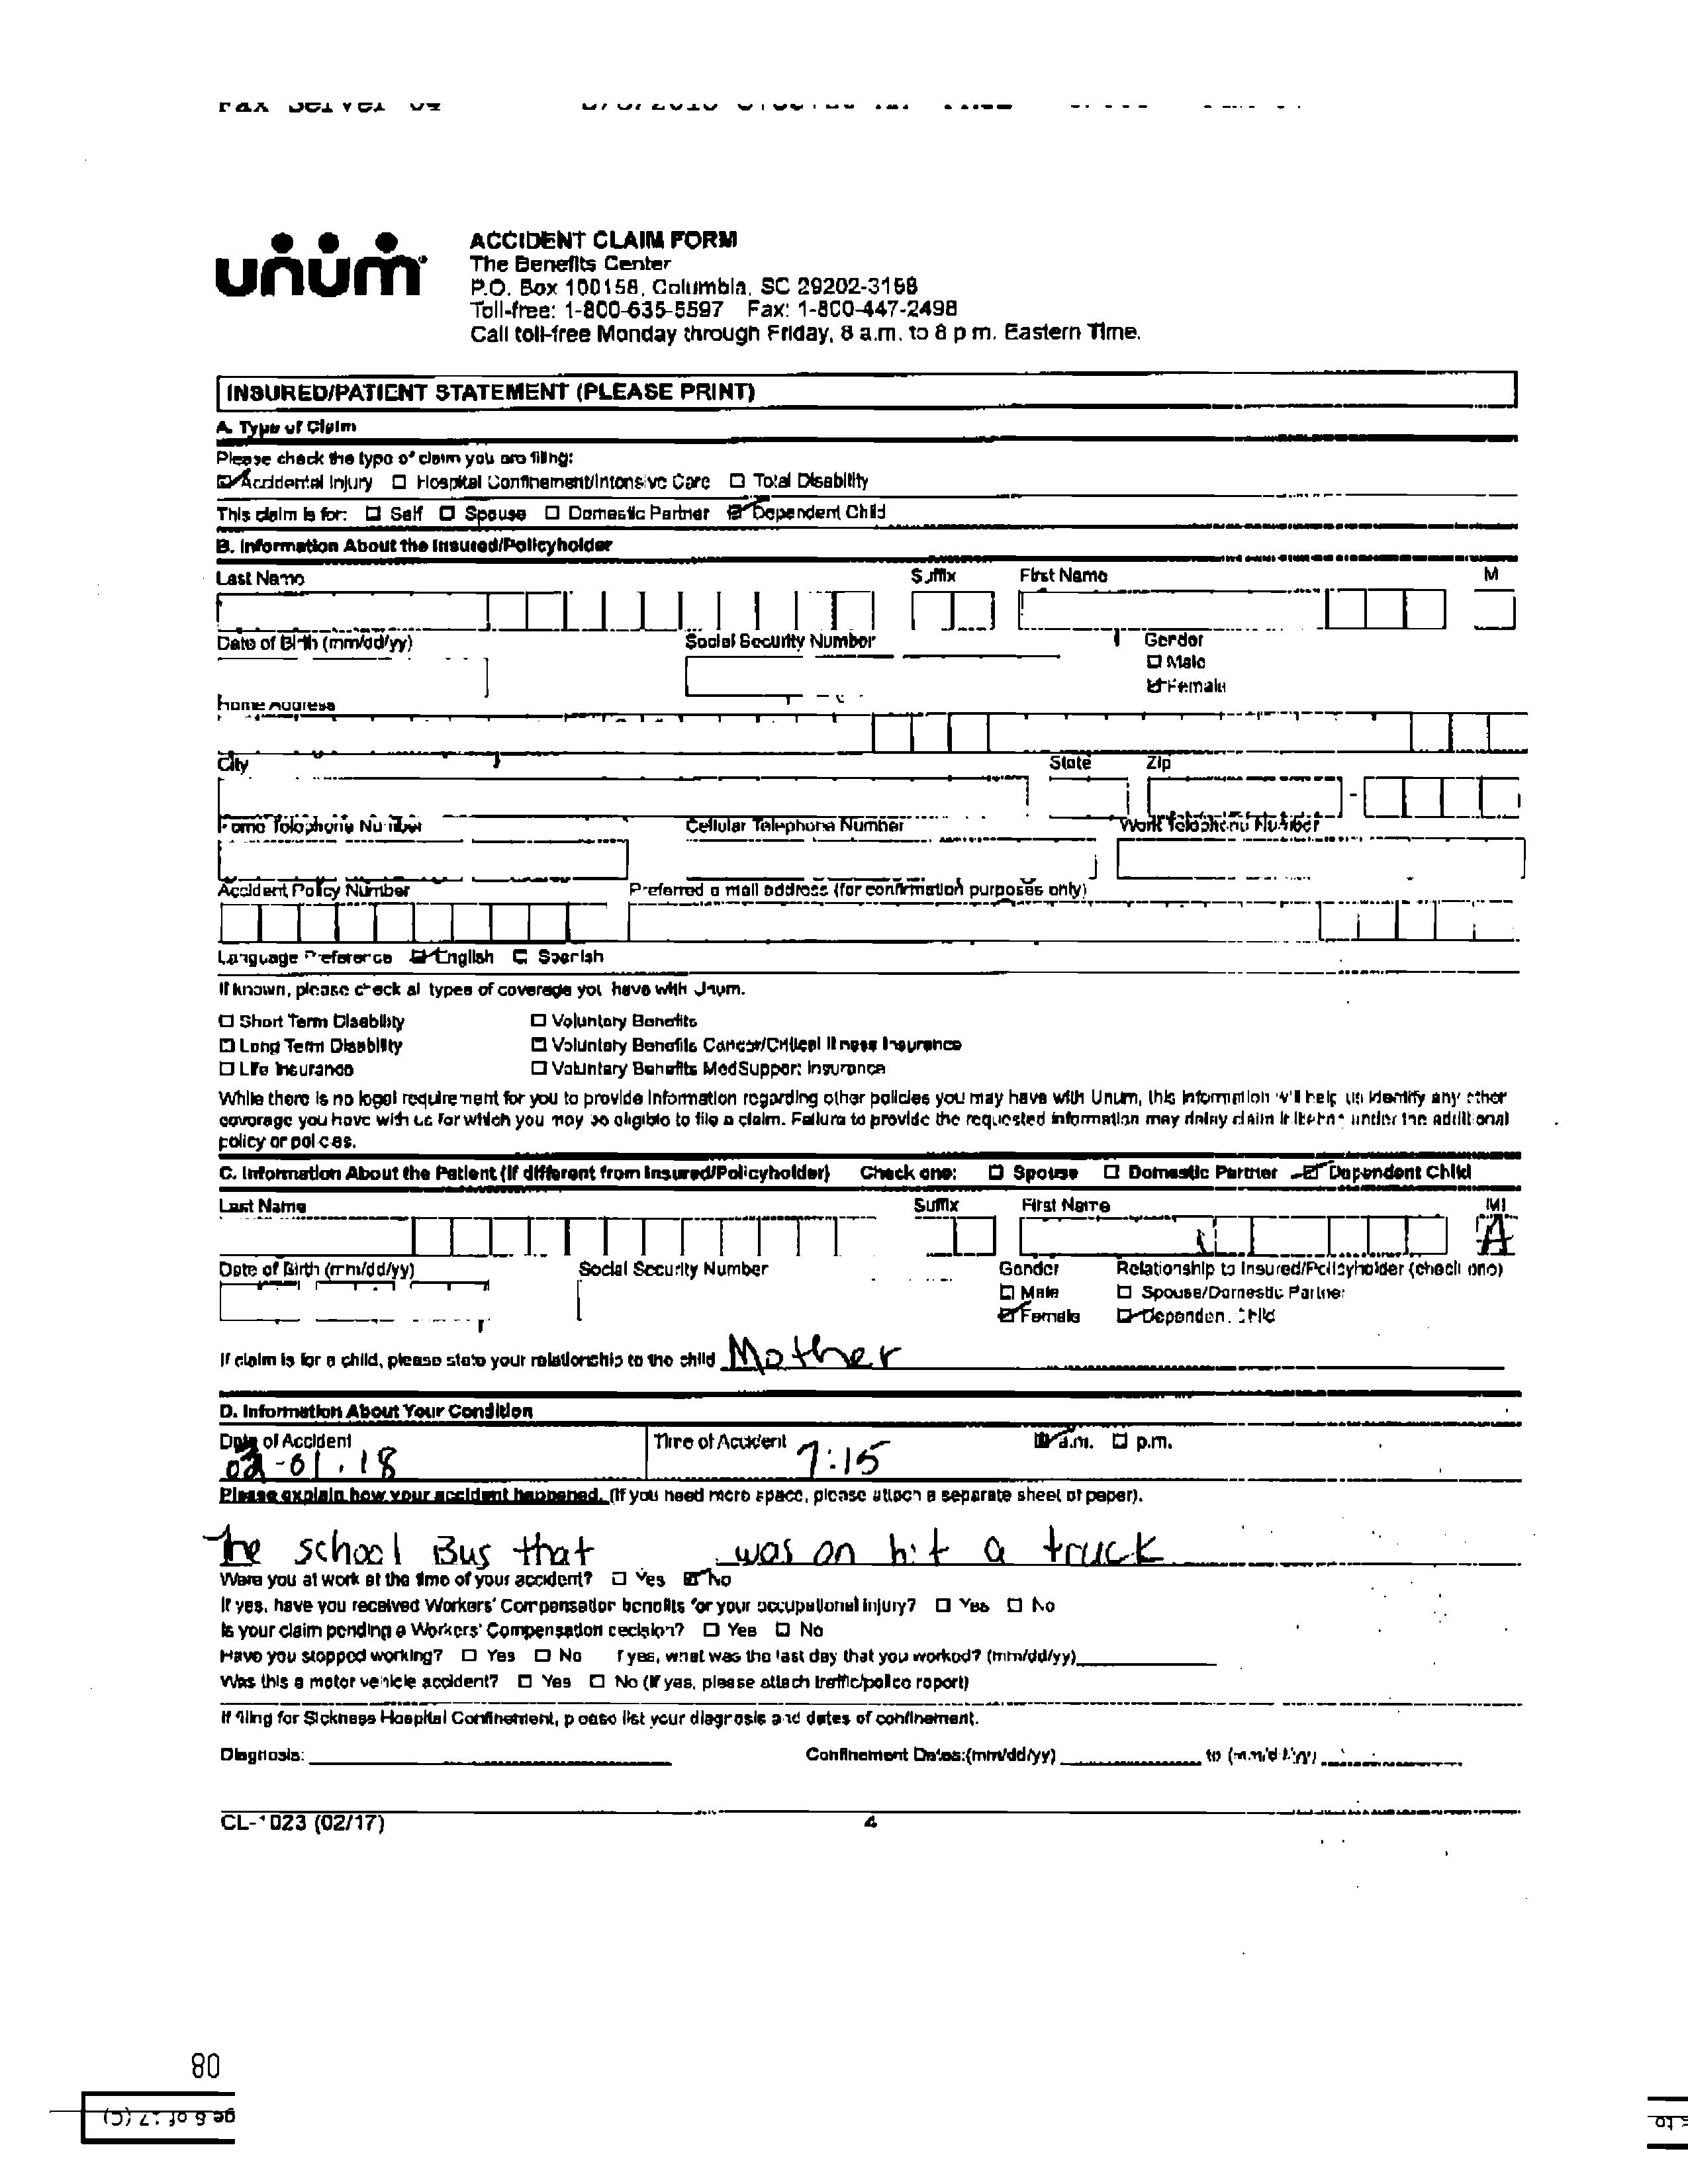 Fax Server 04
unum
ACCIDENT CLAIM FORM
The Benefits Center
P.O. Box 100158, Columbia, SC 29202-3158
Toll-free: 1-800-635-5597 Fax: 1-800-447-2498
Call toll-free Monday through Friday, 8 a.m. to 8 p m. Eastern Time.
INSURED/PATIENT STATEMENT (PLEASE PRINT)
A. Type of Claim
Please check the type of claim you are filing:
Accidental Injury Hospital Confinement/Intensive Care Total Disability
This claim is for: Self Spouse Domestic Partner Dependent Child
B. Information About the Insured/Policyholder
Last Name Suffix First Name M
Date of Birth (mm/dd/yy) Social Security Number Gender
Male
Female
Home Address
City State Zip
Home Telephone Number Cellular Telephone Number Work Telephone Number
Accident Policy Number Preferred e mail address (for confirmation purposes only)
Language Preference English Spanish
If known, please check all types of coverage you have with Unum.
Short Term Disability Voluntary Benefits
Long Term Disability Voluntary Benefits Cancer/Critical Illness Insurance
Life Insurance Voluntary Benefits MedSupport Insurance
While there is no legal requirement for you to provide information regarding other policies you may have with Unum, this information will help us identify any other
coverage you have with us for which you may be eligible to file a claim. Failure to provide the requested information may delay claim under the additional
policy or policies.
C. Information About the Patient (If different from Insured/Policyholder) Check one: Spouse Domestic Partner Dependent Child
Last Name Suffix First Name MI
A
Date of Birth (mm/dd/yy) Social Security Number Gender Relationship to Insured/Policyholder (check one)
Male Spouse/Domestic Partner
Female Dependent Child
If claim is for a child, please state your relationship to the child Mother
D. Information About Your Condition
Date of Accident Time of Accident a.m. p.m.
02-01.18 7:15
Please explain how your accident happened. (If you need more space, please attach a separate sheet of paper).
The school Bus that was on hit a truck
Were you at work at the time of your accident? Yes No
If yes, have you received Workers' Compensation benefits for your occupational injury? Yes No
Is your claim pending a Workers' Compensation decision? Yes No
Have you stopped working? Yes No If yes, what was the last day that you worked? (mm/dd/yy)
Was this a motor vehicle accident? Yes No (If yes, please attach traffic/police report)
If filing for Sickness Hospital Confinement, please list your diagnosis and dates of confinement.
Diagnosis: Confinement Dates:(mm/dd/yy) to (mm/dd/yy)
CL-1023 (02/17) 4
80
ge 8 of 17 (C)